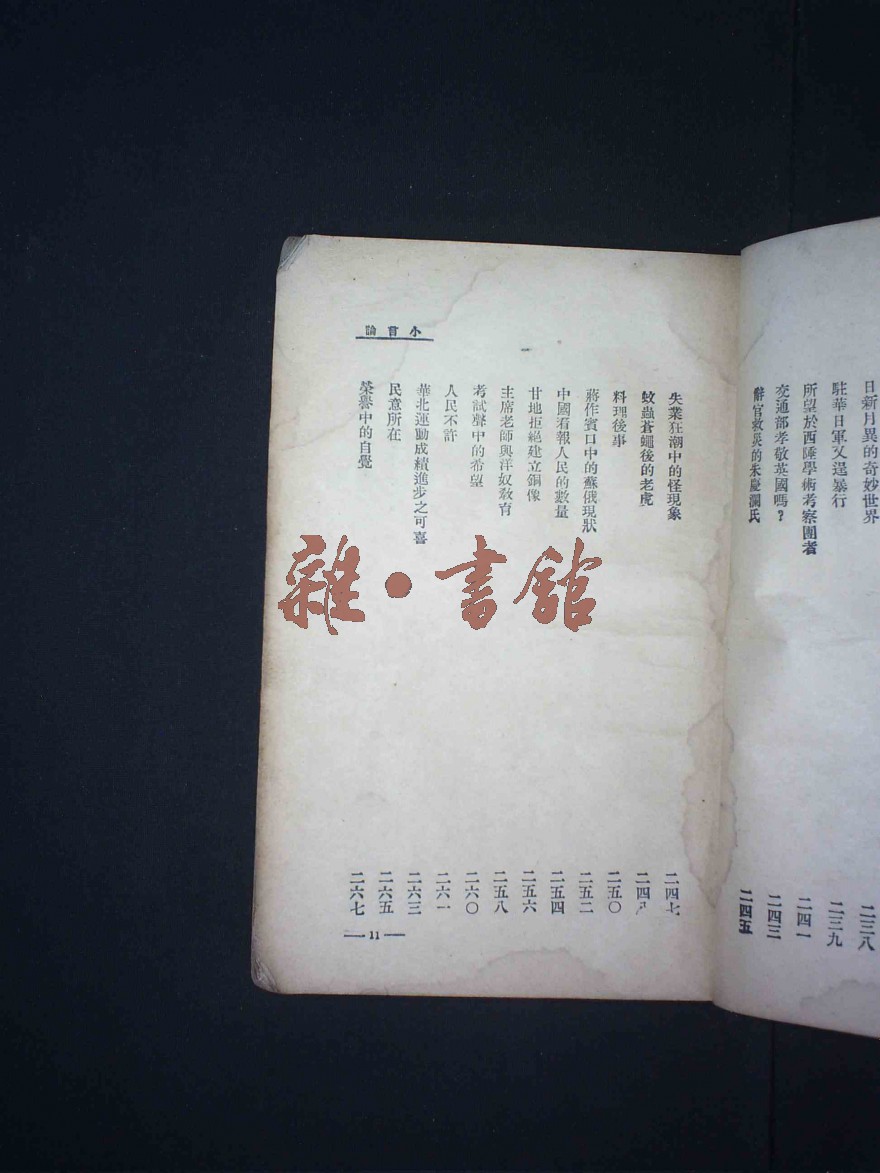 日新月異的奇妙世界 二三八
駐華日軍又逞暴行 二三九
所望於西陲學術考察團者 二四一
交通部孝敬英國嗎？ 二四三
辭官救災的朱慶瀾氏 二四五
小言論
失業狂潮中的怪現象 二四七
蚊蟲蒼蠅後的老虎 二四八
料理後事 二五〇
蔣作賓口中的蘇俄現狀 二五二
中國看報人民的數量 二五四
甘地拒絕建立銅像 二五六
主席老師與洋奴教育 二五八
考試聲中的希望 二六〇
人民不許 二六一
華北運動成績進步之可喜 二六三
民意所在 二六五
榮譽中的自覺 二六七
— 11 —
雜·書館